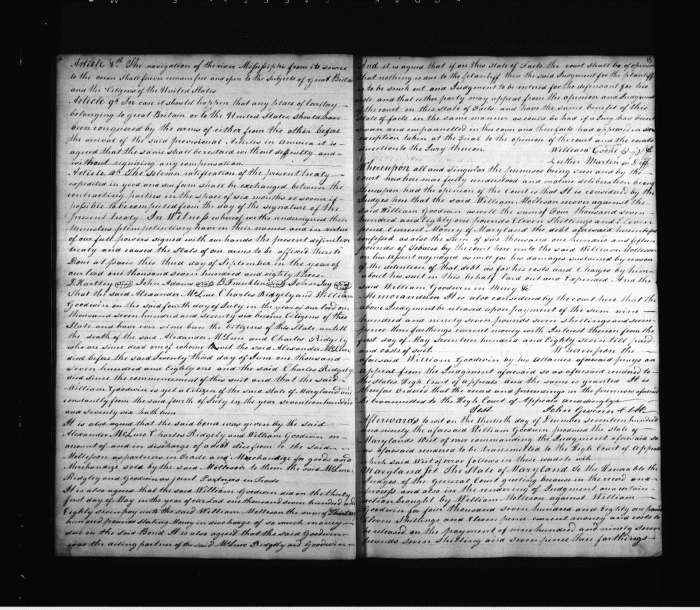 Article 8th The navigation of the river Mississippi from its source
to the ocean shall forever remain free and open to the Subjects of Great Britain
and the Citizens of the United States
Article 9th In case it should happen that any place or territory
belonging to great Britain or to the United States should have
been conquered by the arms of either from the other before
the arrival of the said provisional Articles in America it is
agreed that the same shall be restored without difficulty and
without requiring any compensation
Article 10th The solemn ratification of the present treaty
expedited in good and due form shall be exchanged between the
contracting parties in the space of six months or sooner if
possible to be computed from the day of the signature of the
present treaty In Witness whereof we the undersigned their
Ministers plenipotentiary have in their names and in virtue
of our full powers signed with our hands the present definitive
treaty and caused the Seals of our arms to be affixed thereto
Done at paris this third day of September in the year of
our Lord one thousand seven hundred and eighty three
D Hartley John Adams B Franklin John Jay
That the said Alexander McLure Charles Ridgely and William
Goodwin on the said fourth day of July in the year of our Lord one
thousand seven hundred and seventy six became Citizens of this
State and have ever since been the Citizens of this State untill
the death of the said Alexander McLure and Charles Ridgely
who are since dead one of whom to wit the said Alexander McLure
died before the said twenty third day of June one thousand
seven hundred and eighty one and the said Charles Ridgely
died since the commencement of this suit and that the said
William Goodwin is yet a Citizen of the said State of Maryland and
constantly from the said fourth of July in the year seventeen hundred
and seventy six hath been
It is also agreed that the said bond was given by the said
Alexander McLure Charles Ridgely and William Goodwin on
account of and in discharge of a debt due from to the said
Mollisson as partners in Trade and Merchandize for goods and
Merchandize sold by the said Mollison to them the said McLure
Ridgely and Goodwin as joint Partners in Trade
It is also agreed that the said William Goodwin did on the thirty
first day of May in the year of our Lord one thousand seven hundred and
Eighty seven pay unto the said William Mollison the sum of
hundred pounds sterling Money in discharge of so much money
due on the said Bond It is also agreed that the said Goodwin
was the acting partner of the said McLure Ridgely and Goodwin
And it is agreed that if on this State of Facts the court shall be of opinion
that nothing is due to the plaintiff then the said Judgment for the plaintiff
to be struck out and Judgment to be entered for the defendant for his
costs and that either party may appeal from the opinion and Judgment
of the court on this State of Facts and have the same benefit of this
State of facts in the same manner as could be had if a Jury has been
sworn and empannelled in this cause and these facts had appeared in an
exception taken at the Bar to the opinion of the court and the courts
direction to the Jury thereon
William Cooke
Luther Martin
Whereupon all and singular the premises being seen and by the
court now here more fully understood and mature deliberation being
thereupon had the opinion of the Court is that It is considered by the
Judges here that the said William Mollison recover against the
said William Goodwin as well the sum of Four thousand seven
hundred and eighty one pounds Eleven Shillings and Eleven
pence Current Money of Maryland the debt aforesaid
confessed as also the sum of five thousand one hundred and fifteen
pounds of tobacco by the court here to the said William Mollison
on his assent adjudged as well for his damages sustained by reason
of the detention of that debt as for his costs and Charges by him
about his suit in this behalf laid out and Expended And the
said William Goodwin in Mercy &c
Memorandum It is also considered by the court here that the
above Judgment be released upon payment of the sum nine
hundred and ninety seven pounds seven shillings and seven
pence three farthings current money with Interest thereon from the
first day of May seventeen hundred and eighty seven till paid
and costs of suit Whereupon the
aforesaid William Goodwin by his Attorney aforesaid prays an
appeal from the Judgment aforesaid so as aforesaid rendered to
the States High Court of Appeals and the same is granted It is
therefore Ordered that the record and proceedings in the premises aforesaid
be transmitted to the High Court of Appeals accordingly
Test. John Gwinn Clk
Afterwards to wit on the thirtieth day of December seventeen hundred
and ninety the aforesaid William Goodwin produced the State of
Marylands Writ of error commanding the Judgment aforesaid so
as aforesaid rendered to be transmitted to the High Court of Appeals
which said Writ of error follows in these words to wit
Maryland sct The State of Maryland To the Honorable the
Judges of the General Court greeting because in the record and
process and also in the rendering of Judgment in a certain
action brought by William Mollison against William
Goodwin for four Thousand seven hundred and eighty one pounds
Eleven Shillings and Eleven pence current money and costs to
be released on the payment of nine hundred and ninety seven
pounds seven shilling and seven pence three farthings